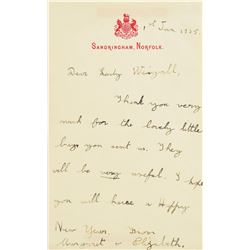 1st Jan 1935.
SANDRINGHAM, NORFOLK.
Dear Lady Weigall,
Thank you very
much for the lovely little
bags you sent us. They
will be very useful. I hope
you will have a Happy
New Year. From
Margaret & Elizabeth.